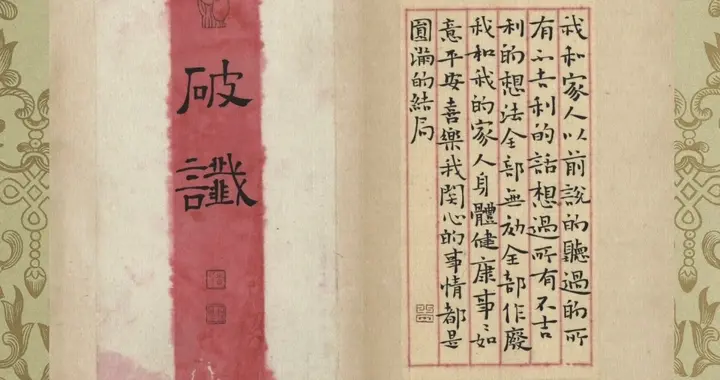 破讖
我和家人以前說的聽過的所
有不吉利的話想過所有不吉
利的想法全部無効全部作廢
我和我的家人身體健康事〻如
意平安喜樂我関心的事情都是
圓滿的結局